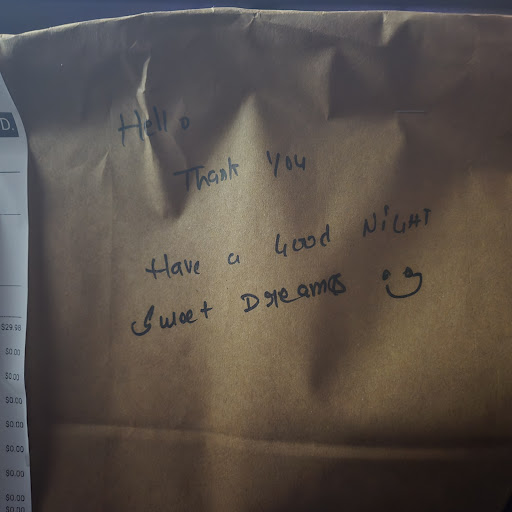 D.
Hello
Thank You
Have a Good NiGHT
Sweet Dreams
$29.98
$0.00
$0.00
$0.00
$0.00
$0.00
$0.00
$0.00
$0.00